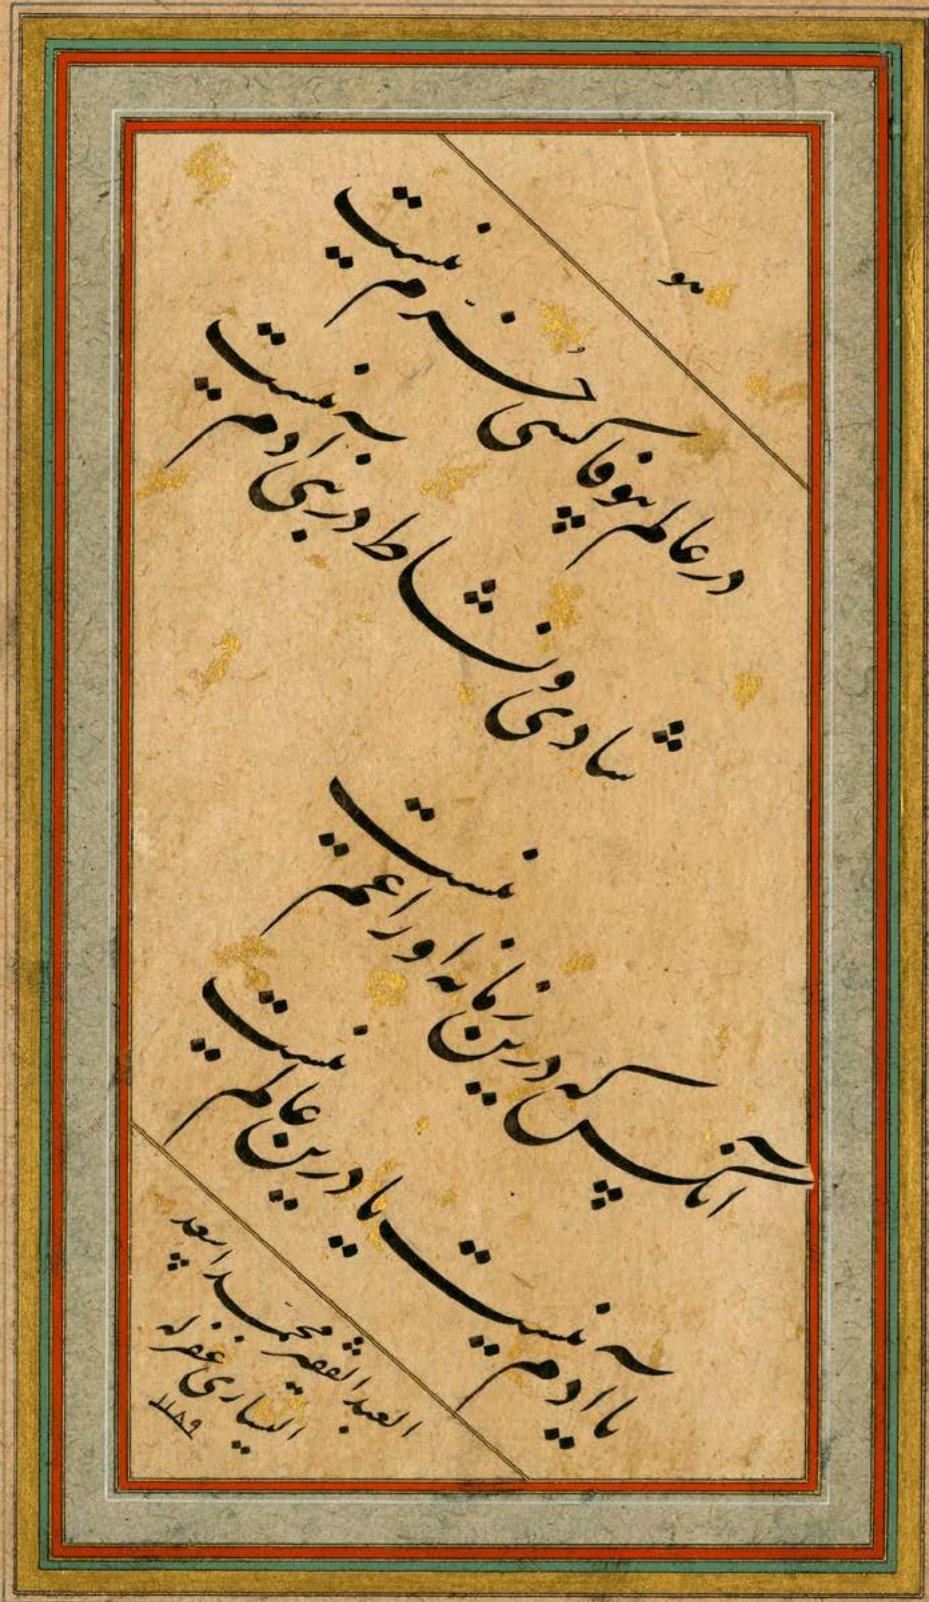 هو
در عالم بیوفا کسی خرم نیست
شادی و نشاط در بنی ادم نیست
آنکس که درین زمانه او را غم نیست
یا آدم نیست یا درین عالم نیست
العبد الفقیر محمد اسعد
الیساری غفر له
۱۱۸۹